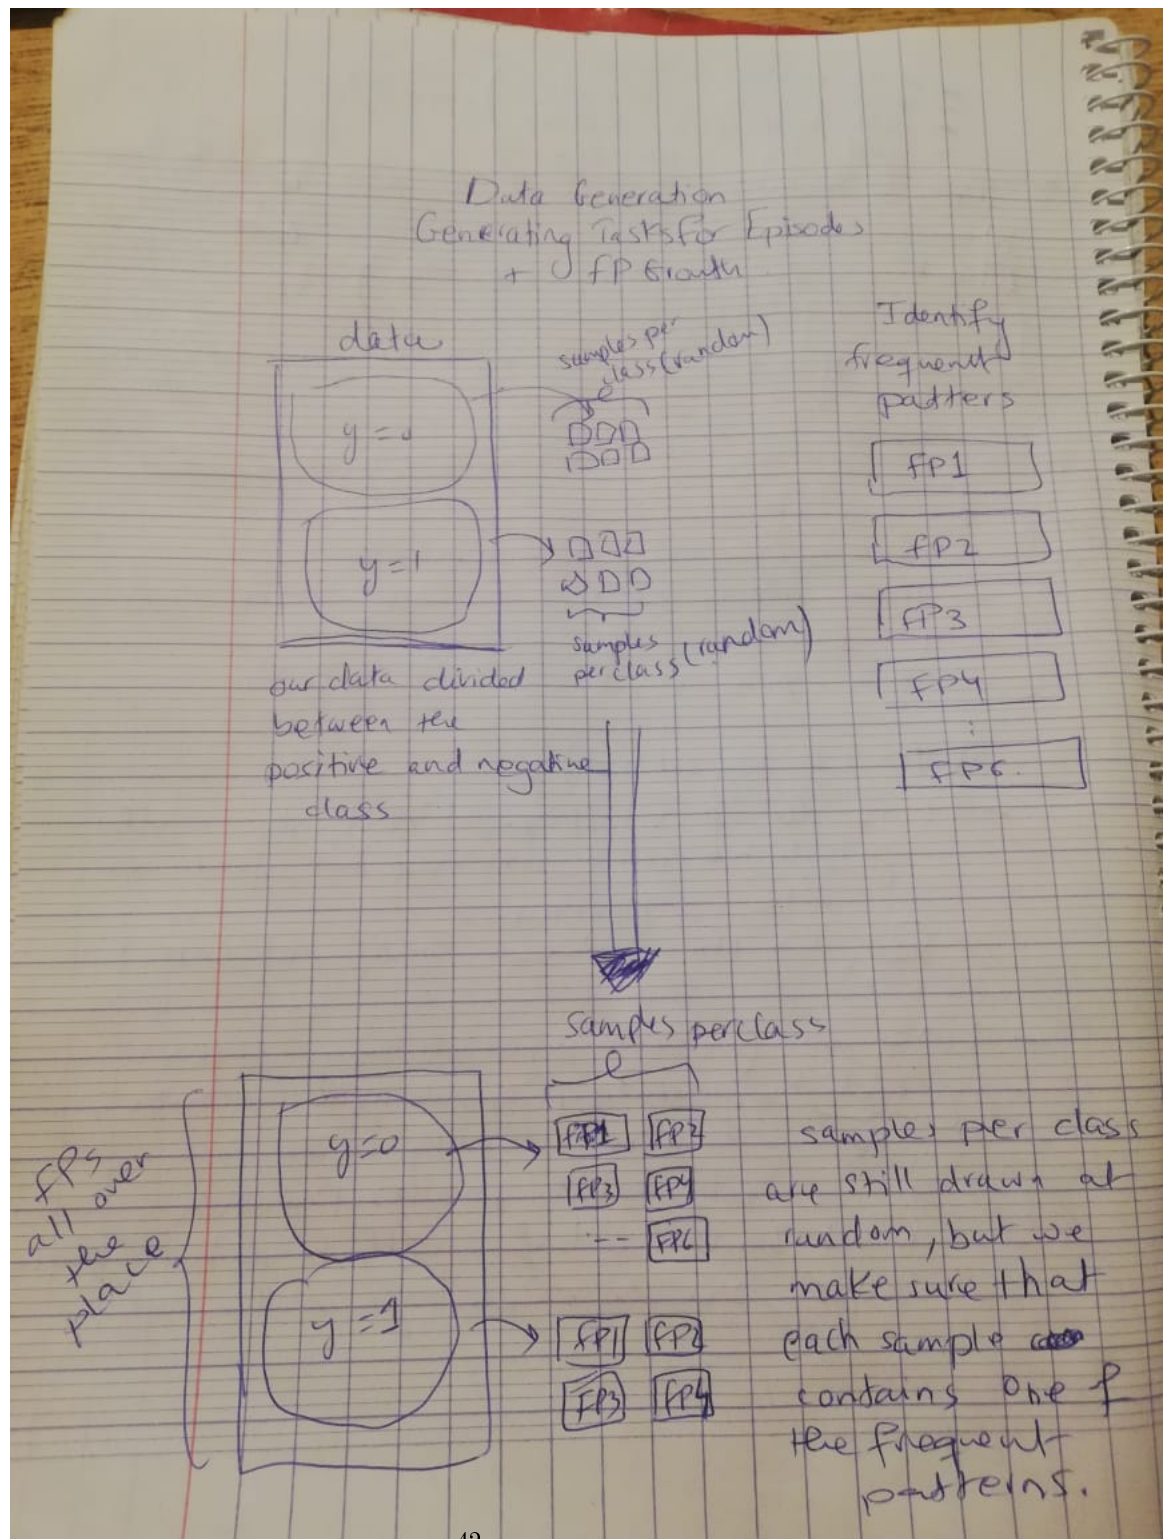 Data Generation
Generating Tasks for Episodes
+ FP Growth
data
samples per
class (random)
y = 0
y = 1
samples
per class (random)
our data divided
between the
positive and negative
class
Identify
frequent
patters
FP1
FP2
FP3
FP4
⋮
samples per class
FPs
all over
the
place
y=0
FP1 FP2
FP3 FP4
--
y=1
FP1 FP2
FP3 FP4
samples per class
are still drawn at
random, but we
make sure that
each sample
contains one f
the frequent
patterns.
42